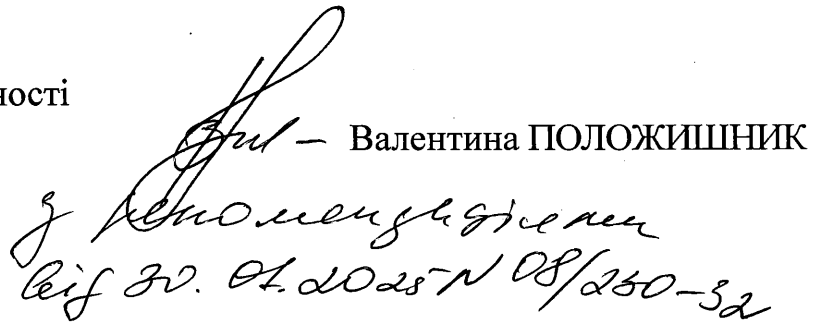 ності
Валентина ПОЛОЖИШНИК
з рекомендаціями
від 30.01.2025 N 08/230-32